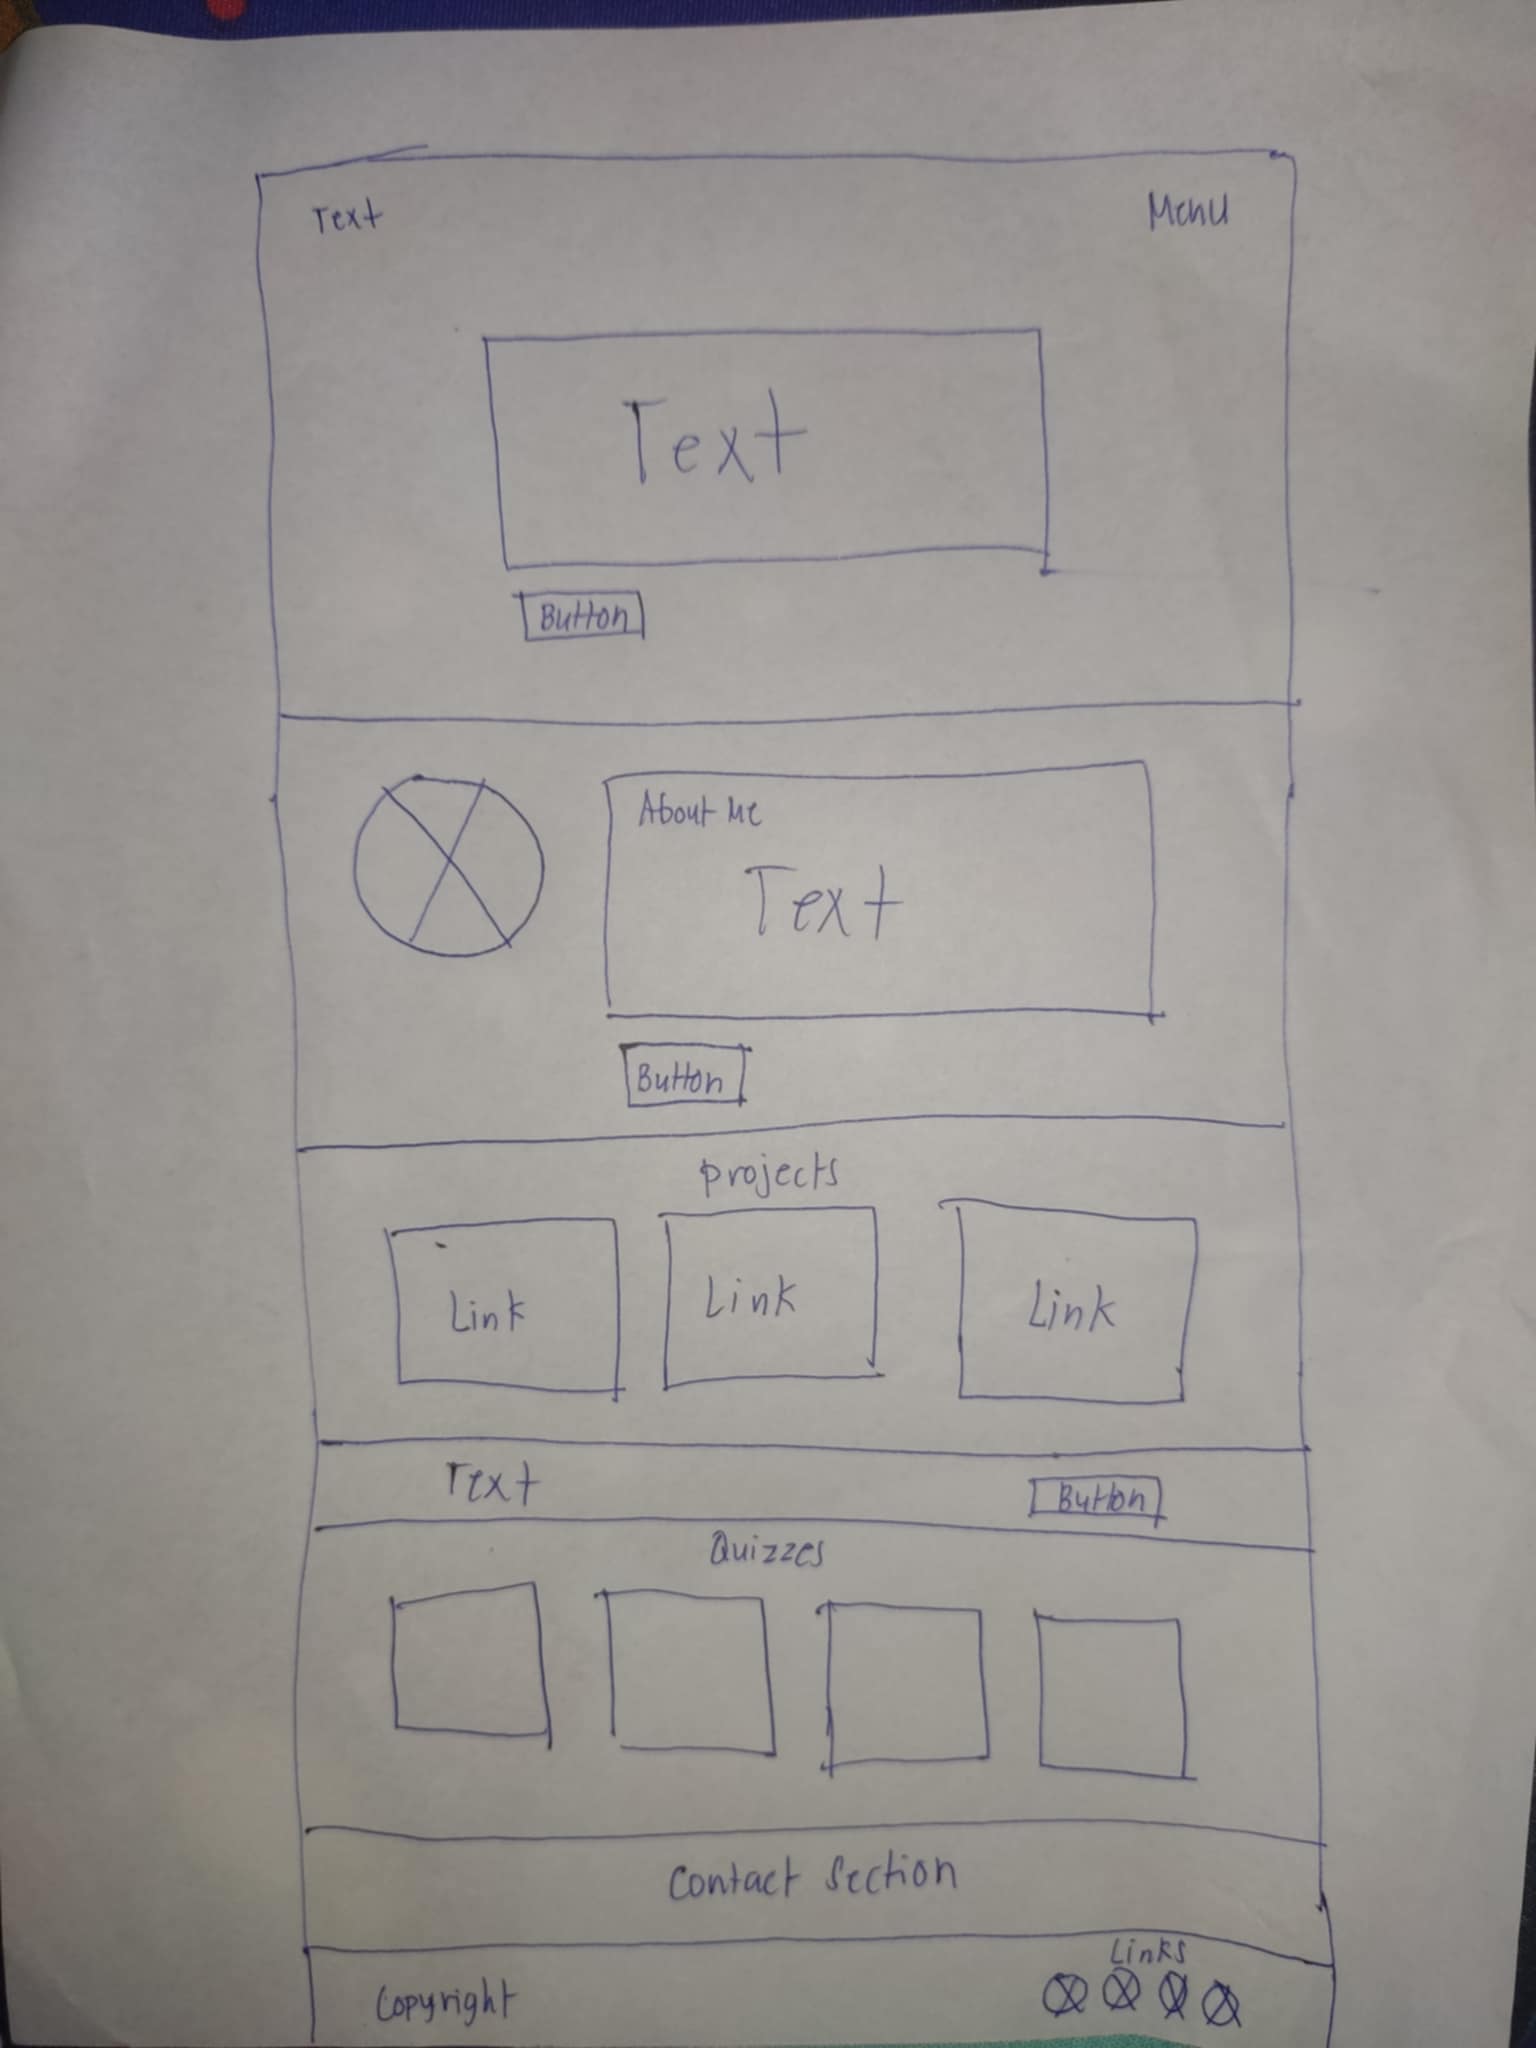 Text
Menu
Text
Button
About Me
Text
Button
projects
Link
Link
Link
Text
Button
Quizzes
Contact Section
Links
Copyright